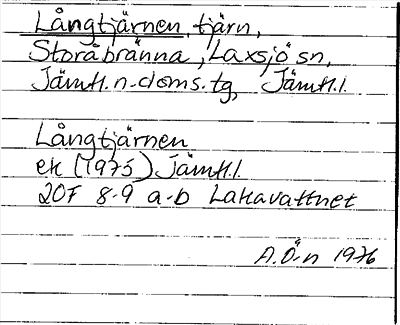 Långtjärnen, tjärn,
Storåbränna, Laxsjö sn,
Jämtl.n.doms.tg, Jämtl.l.
Långtjärnen
ek (1975) Jämtl.l.
20F 8-9 a-b Lakavattnet
A.Ö-n 1976